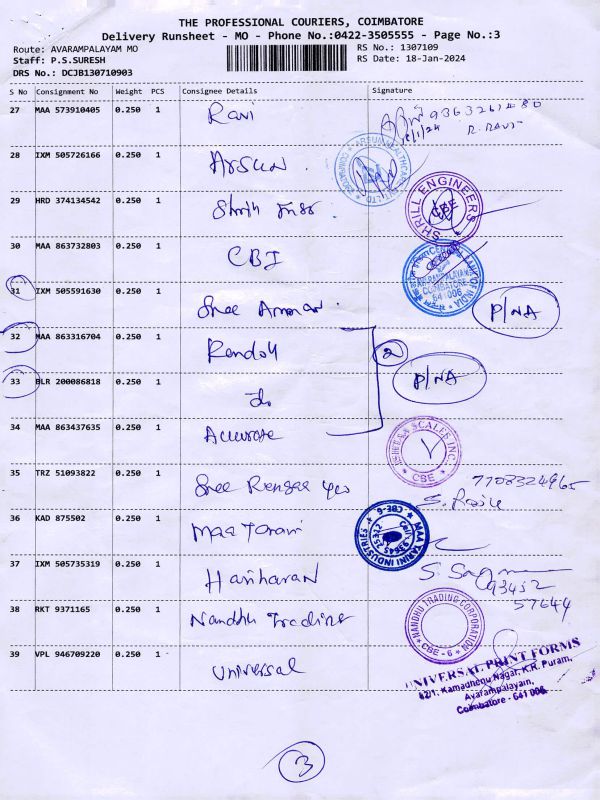 THE PROFESSIONAL COURIERS, COIMBATORE
Delivery Runsheet - MO - Phone No.:0422-3505555 - Page No.:3
Route: AVARAMPALAYAM MO
RS No.: 1307109
Staff: P.S.SURESH
RS Date: 18-Jan-2024
DRS No.: DCJB130710903
S No Consignment No Weight PCS Consignee Details Signature
27 MAA 573910405 0.250 1 Ravi
18/1/24 R. RAVI
28 IXM 505726166 0.250 1 ARSUN
29 HRD 374134542 0.250 1
SHRILL ENGINEERS CBE
30 MAA 863732803 0.250 1 CBI
BANK OF INDIA
COIMBATORE
641 006
31 IXM 505591630 0.250 1 Sree Amman
P/NA
32 MAA 863316704 0.250 1
2
33 BLR 200086818 0.250 1 do
P/NA
34 MAA 863437635 0.250 1 Accurate
SCALES INC. CBE
35 TRZ 51093822 0.250 1 Sree Rengaa
7708324965
36 KAD 875502 0.250 1 Maa Tarani
MAA TARINI INDUSTRIES CBE-6
37 IXM 505735319 0.250 1 Hariharan
93452
57644
38 RKT 9371165 0.250 1 Nandhu Trading
NANDHU TRADING CORPORATION CBE - 6
39 VPL 946709220 0.250 1 Universal
UNIVERSAL PRINT FORMS
62/1, Kamadhenu Nagar, K.R. Puram,
Avarampalayam,
Coimbatore - 641 006.
3